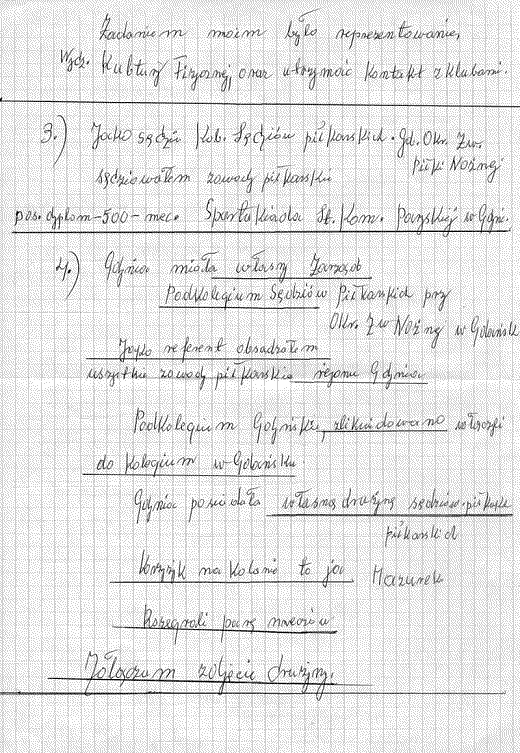 Zadaniem moim było reprezentowanie,
Wydz. Kultury Fizycznej, oraz utrzymać kontakt z klubami.
3.) Jako sędzia Kol. Sędziów piłkarskich Gd. Okr. Zw.
Piłki Nożnej
sędziowałem zawody piłkarskie
pos. dyplom - 500 - mec. Spartakiada St. Kom. Paryskiej w Gdyni.
4.) Gdynia miała własny Zarząd
Podkolegium Sędziów Piłkarskich przy
Okr. Zw Nożnej w Gdańsku
Jako referent obsadzałem
wszystkie zawody piłkarskie rejonu Gdynia
Podkolegium Gdyńskie, zlikwidowano włączając
do kolegium w Gdańsku.
Gdynia posiadała własną drużynę sędziów-piłkarzy
piłkarskich
Krzyżyk na kolanie to ja Mazurek
Rozegrali parę meczów
Załączam zdjęcie drużyny.